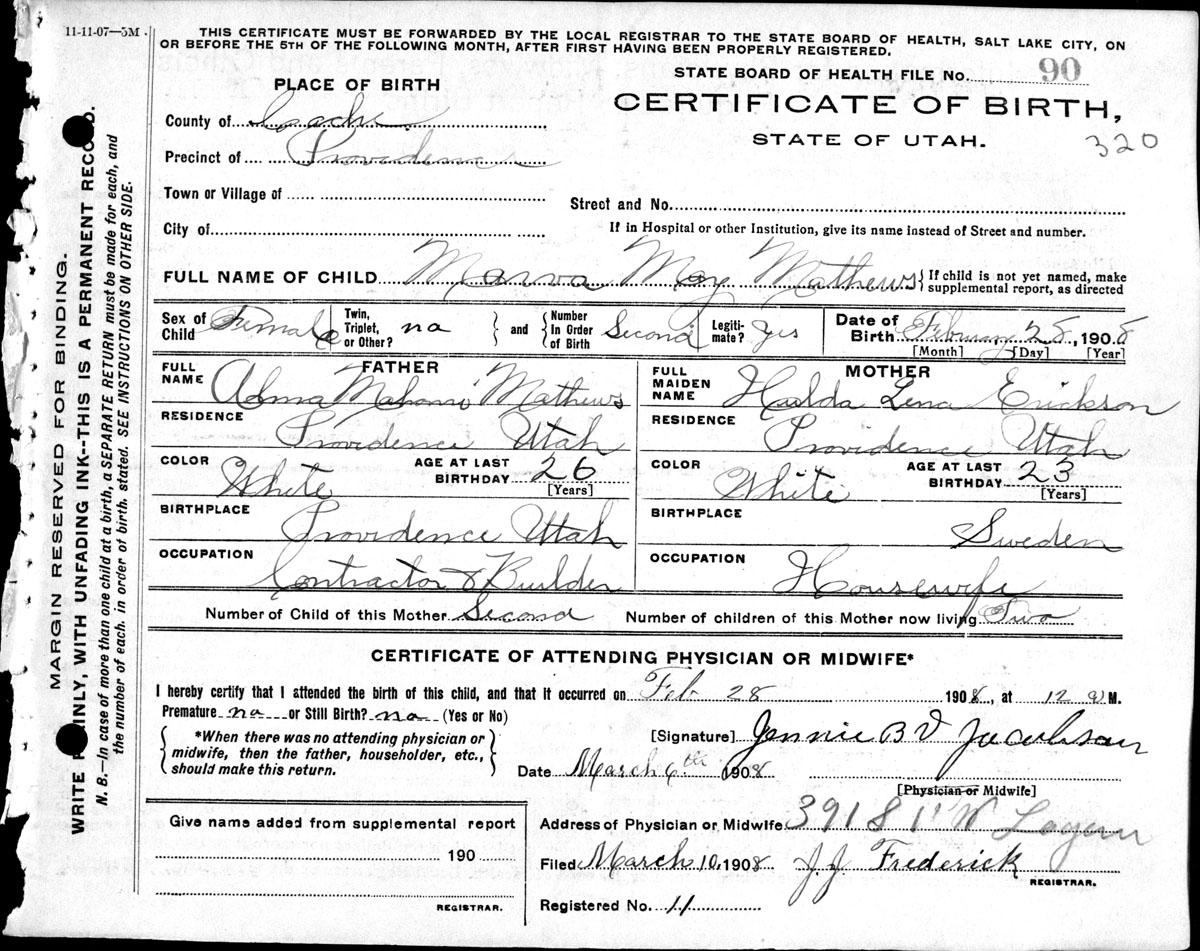 11-11-07—5M.
THIS CERTIFICATE MUST BE FORWARDED BY THE LOCAL REGISTRAR TO THE STATE BOARD OF HEALTH, SALT LAKE CITY, ON
OR BEFORE THE 5TH OF THE FOLLOWING MONTH, AFTER FIRST HAVING BEEN PROPERLY REGISTERED.
STATE BOARD OF HEALTH FILE No. 90
PLACE OF BIRTH
CERTIFICATE OF BIRTH,
STATE OF UTAH.
320
County of Cache
Precinct of Providence
Town or Village of
Street and No.
City of
If in Hospital or other Institution, give its name instead of Street and number.
FULL NAME OF CHILD Marva May Mathews { If child is not yet named, make supplemental report, as directed
Sex of Child Female Twin, Triplet, or Other? no } and { Number In Order of Birth Second Legitimate? Yes Date of Birth February 28, 1908
[Month] [Day] [Year]
FATHER
FULL NAME Alma Mathews
RESIDENCE Providence Utah
COLOR White AGE AT LAST BIRTHDAY 26 [Years]
BIRTHPLACE Providence Utah
OCCUPATION Contractor & Builder
MOTHER
FULL MAIDEN NAME Hulda Lena Erickson
RESIDENCE Providence Utah
COLOR White AGE AT LAST BIRTHDAY 23 [Years]
BIRTHPLACE Sweden
OCCUPATION Housewife
Number of Child of this Mother Second Number of children of this Mother now living Two
CERTIFICATE OF ATTENDING PHYSICIAN OR MIDWIFE*
I hereby certify that I attended the birth of this child, and that it occurred on Feb 28 1908, at 12 a M.
Premature no or Still Birth? no (Yes or No)
{ *When there was no attending physician or midwife, then the father, householder, etc., should make this return. }
[Signature] Jennie B V Jacobson
Date March 6th 1908
[Physician or Midwife]
Address of Physician or Midwife Logan
Filed March 10, 1908 J.J. Frederick
REGISTRAR.
Registered No. 11
Give name added from supplemental report
190
REGISTRAR.
MARGIN RESERVED FOR BINDING.
WRITE PLAINLY, WITH UNFADING INK--THIS IS A PERMANENT RECORD.
N. B.—In case of more than one child at a birth, a SEPARATE RETURN must be made for each, and
the number of each, in order of birth, stated. SEE INSTRUCTIONS ON OTHER SIDE.